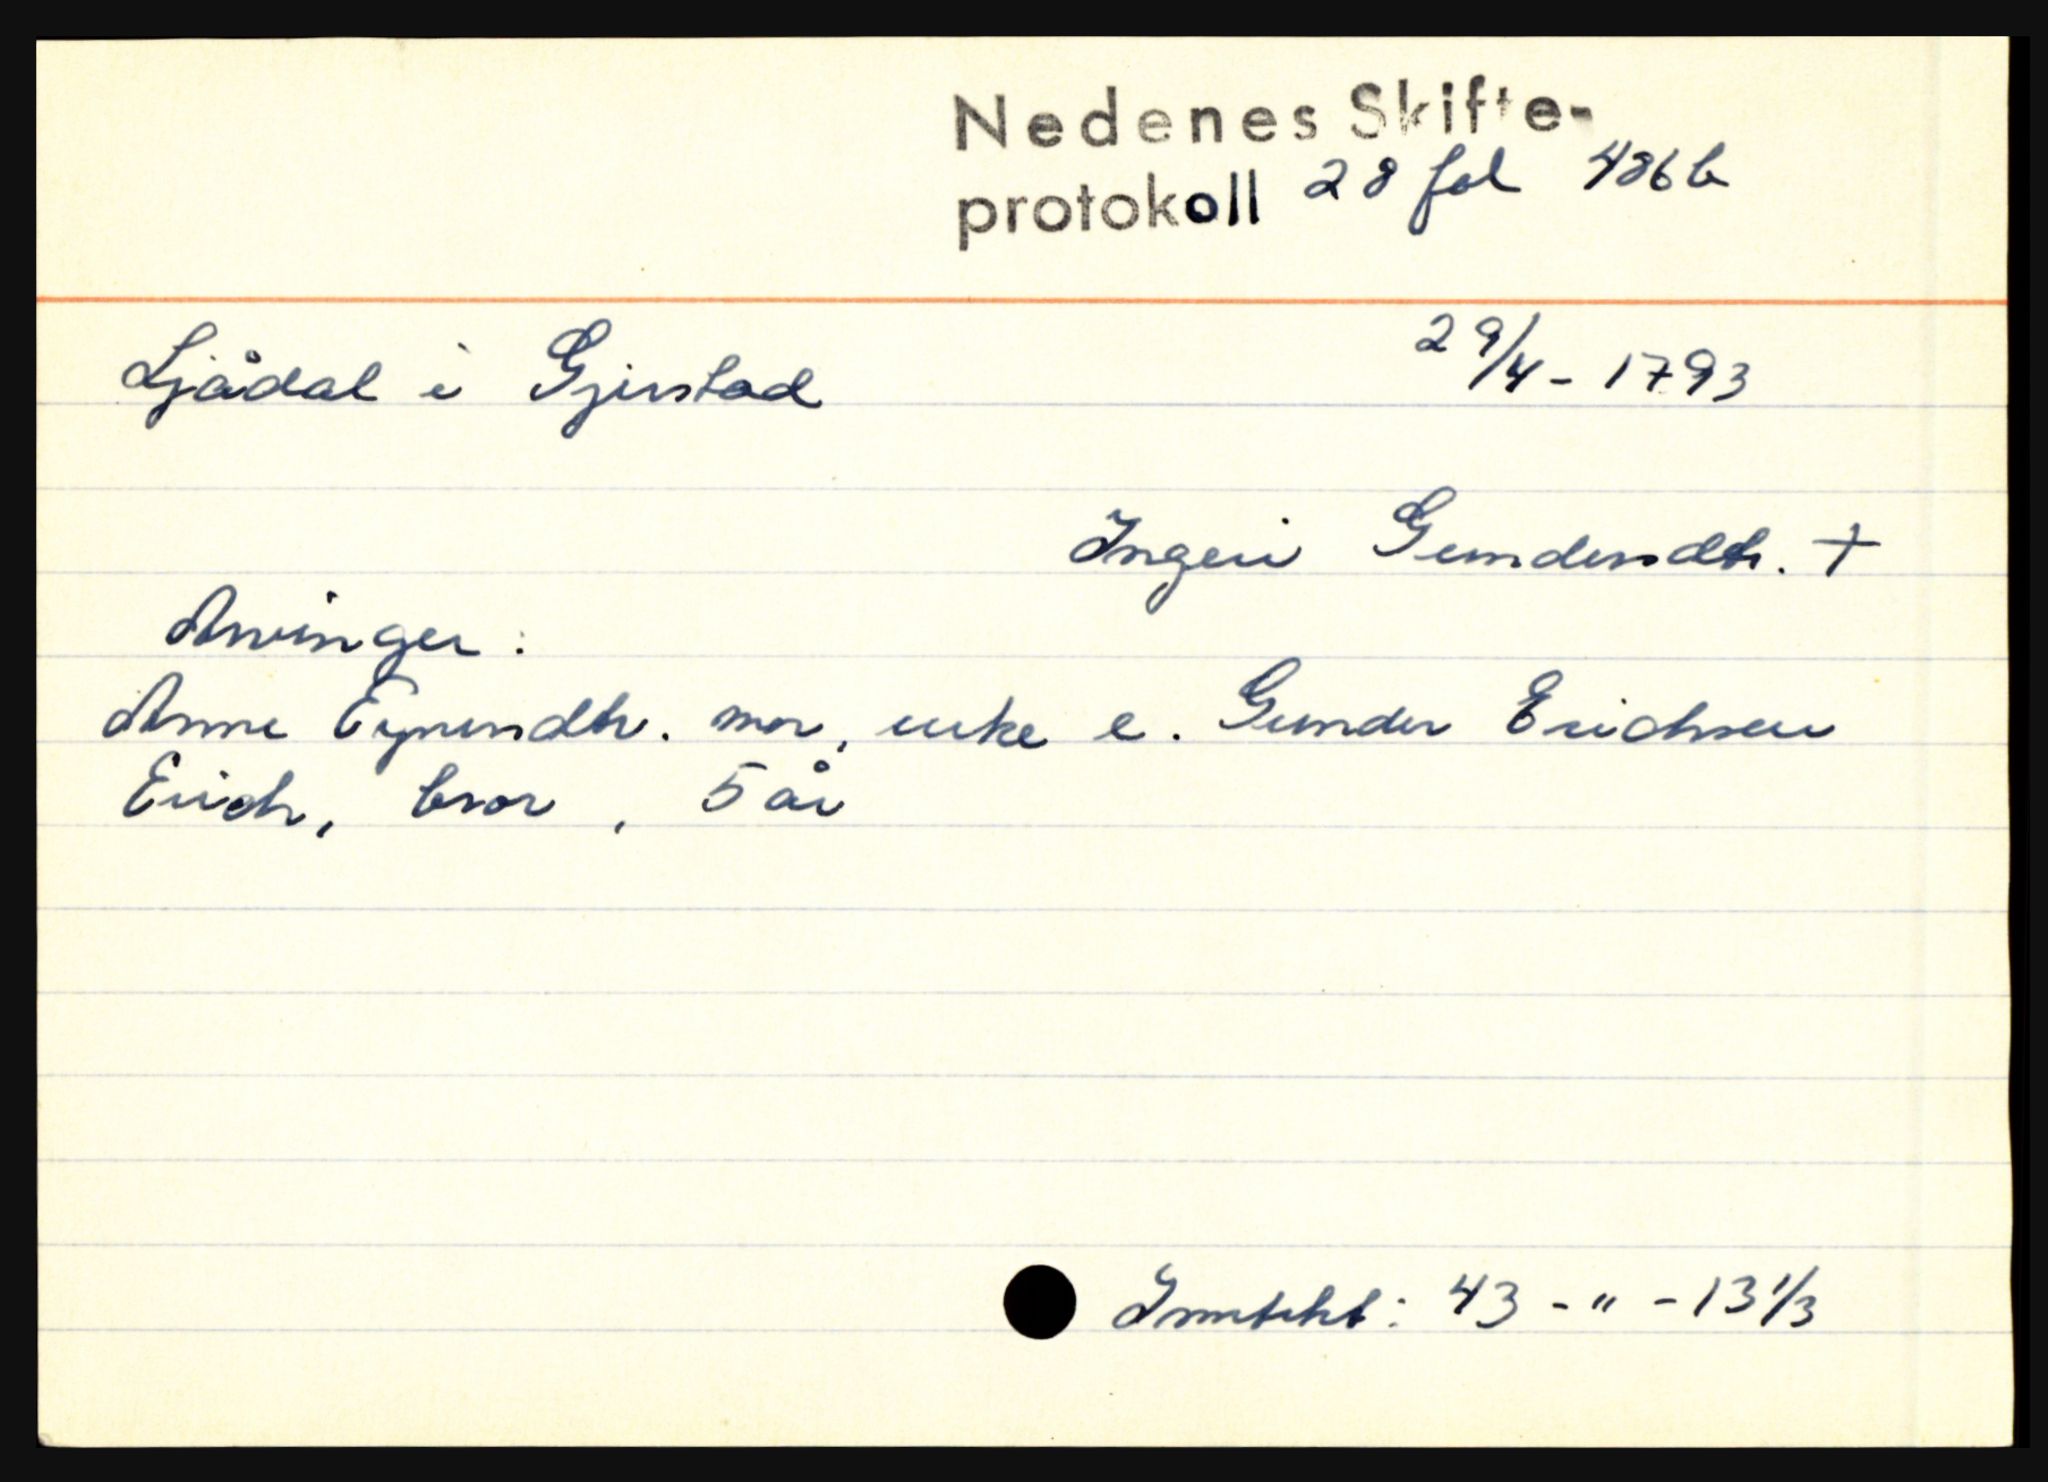 Nedenes Skifte-
protokoll 28 fol 486b
Ljådal i Gjerstad 29/4-1793
Ingeri Gundersdtr. +
Arvinger:
Anne Eyvindsdtr. mor, enke e. Gunder Erichsen
Erich, bror, 5 år
Inntekt: 43-"-13 1/3